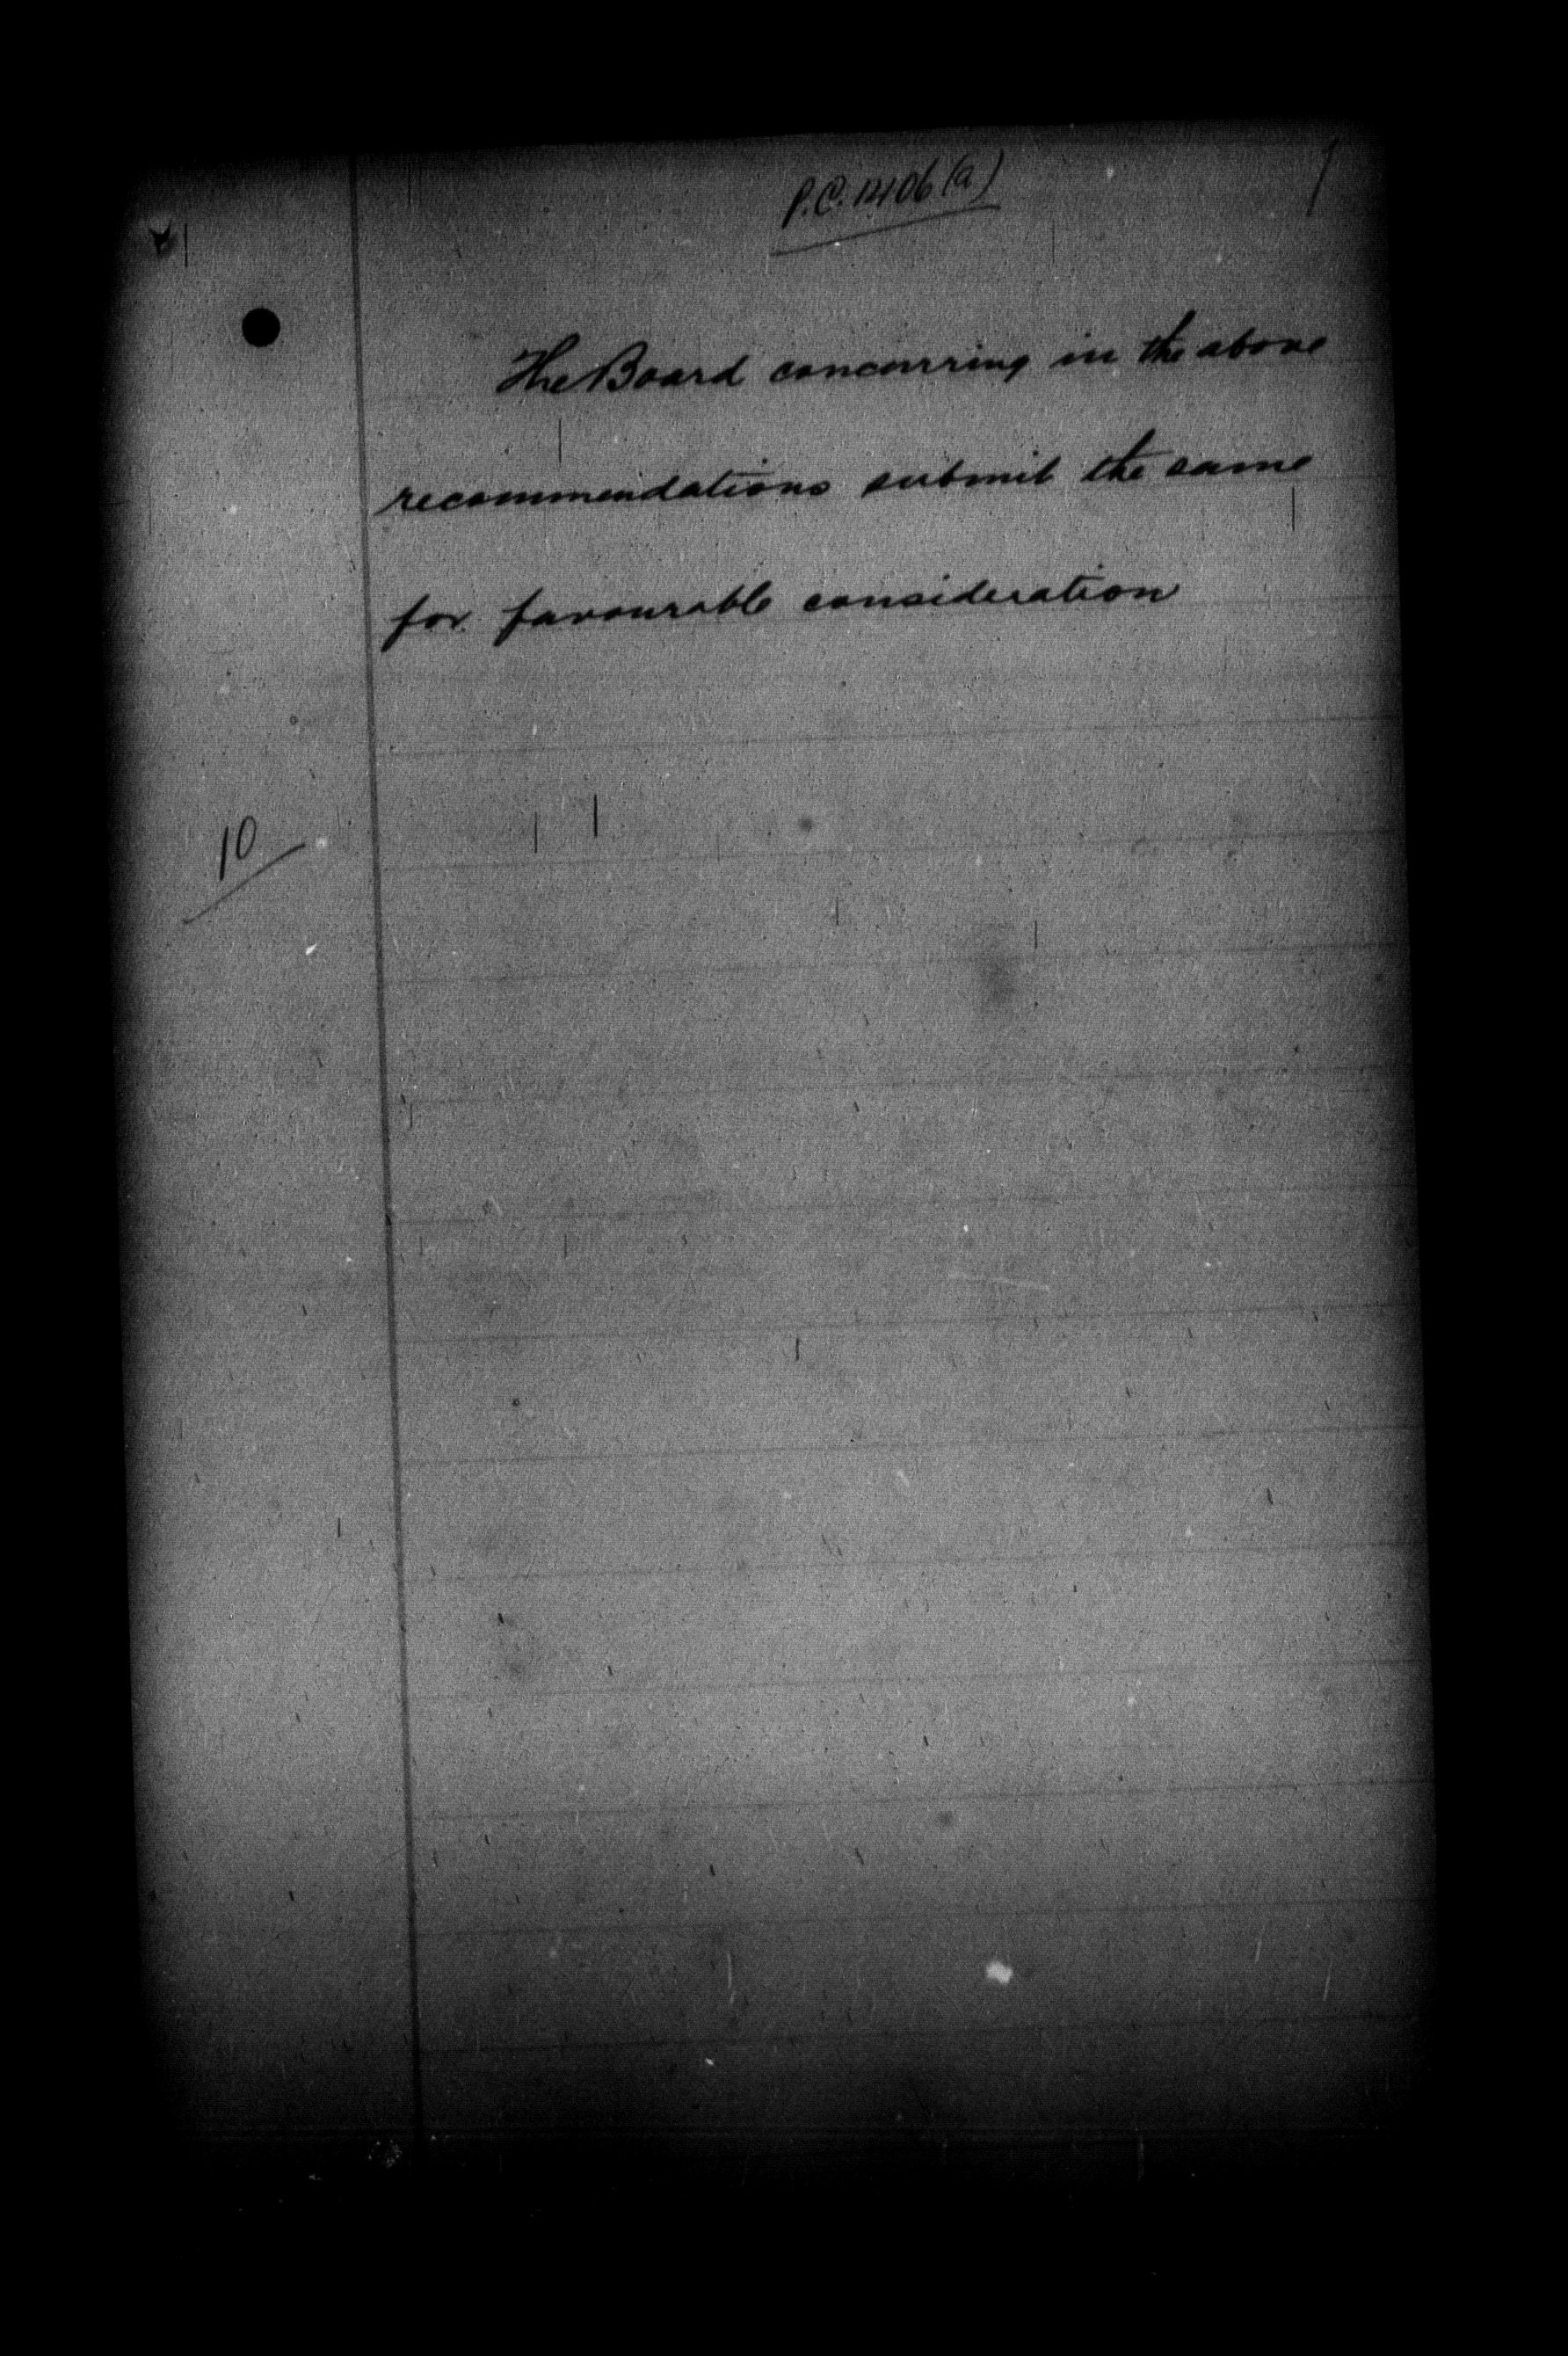 P.C. 1406 (a)
The Board concurring in the above
recommendations submit the same
for favourable consideration
10